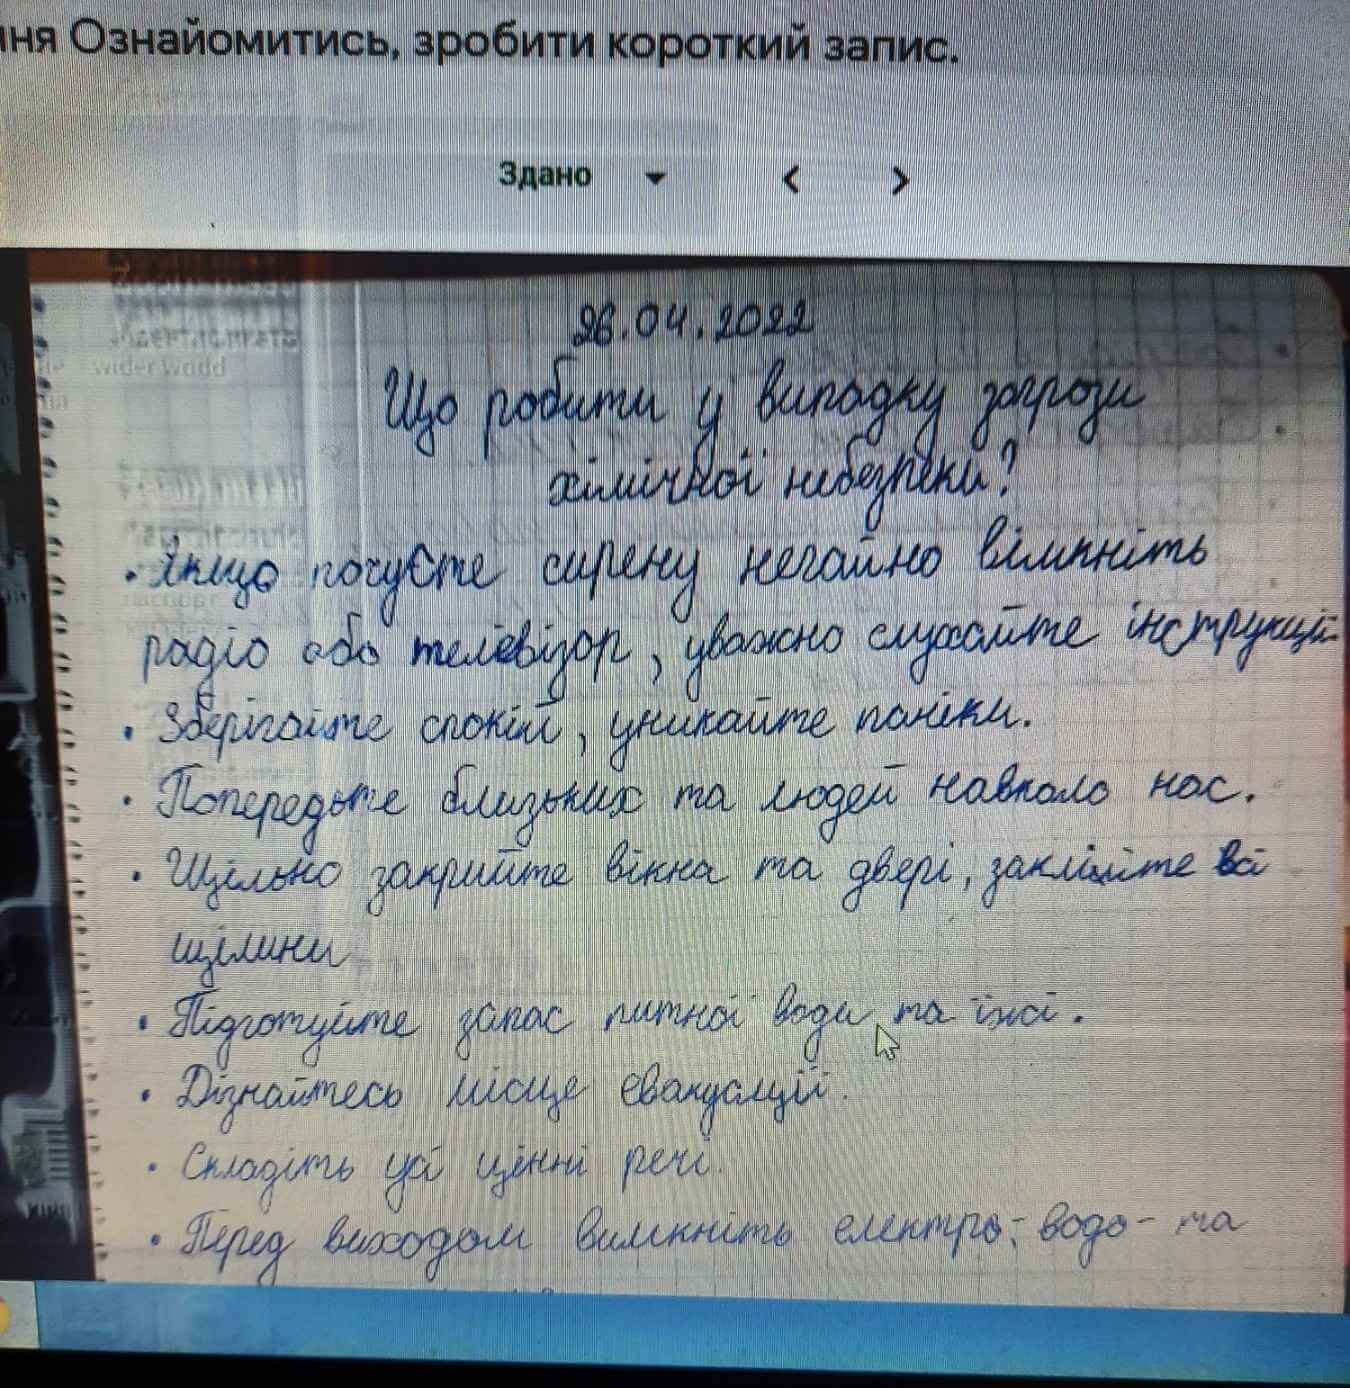 ння Ознайомитись, зробити короткий запис.
Здано
26.04.2022
Що робити у випадку загрози
хімічної небезпеки?
• Якщо почуєте сирену негайно вімкніть
радіо або телевізор, уважно слухайте інструкції.
• Зберігайте спокій, уникайте паніки.
• Попередьте близьких та людей навколо нас.
• Щільно закрийте вікна та двері, заклійте всі
щілини
• Підготуйте запас питної води та їжі.
• Дізнайтесь місце евакуації.
• Складіть усі цінні речі.
• Перед виходом вимкніть електро-, водо- та
wider world